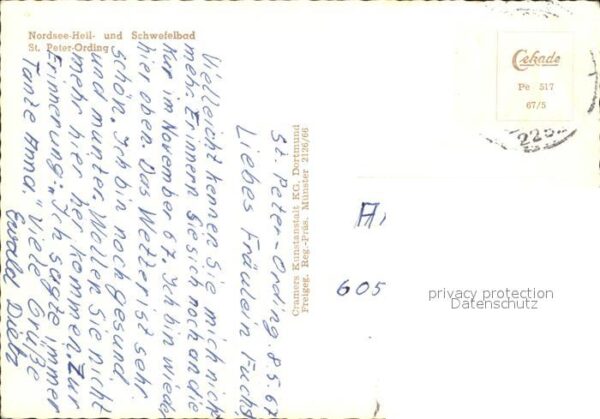 Nordsee-Heil- und Schwefelbad
St. Peter-Ording
St. Peter-Ording. 8.5.67
Liebes Fräulein Fuchs
Vielleicht kennen Sie mich nicht
mehr. Erinnern Sie sich noch an die
Kur im November 67. Ich bin wieder
hier oben. Das Wetter ist sehr
schön. Ich bin noch gesund
und munter. Wollen Sie nicht
mehr hier her kommen. Zur
Erinnerung: „Ich sagte immer
Tante Anna." Viele Grüße
Ewald Dietz
Cramers Kunstanstalt KG, Dortmund
Freigeg. Reg.-Präs. Münster 2126/66
Cekade
Pe 517
67/5
225
605
privacy protection
Datenschutz